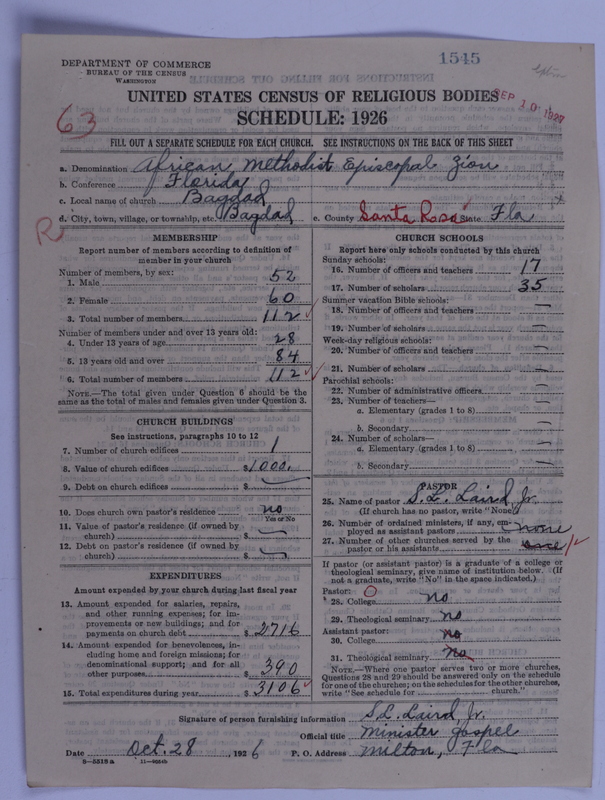 1545
DEPARTMENT OF COMMERCE
BUREAU OF THE CENSUS
WASHINGTON
UNITED STATES CENSUS OF RELIGIOUS BODIES
SEP 10 1927
SCHEDULE: 1926
63
FILL OUT A SEPARATE SCHEDULE FOR EACH CHURCH. SEE INSTRUCTIONS ON THE BACK OF THIS SHEET
a. Denomination African Methodist Episcopal Zion
b. Conference Florida
c. Local name of church Bagdad
d. City, town, village, or township, etc. Bagdad e. County Santa Rosa State Fla
R
MEMBERSHIP
Report number of members according to definition of
member in your church
Number of members, by sex:
1. Male 52
2. Female 60
3. Total number of members 112
Number of members under and over 13 years old:
4. Under 13 years of age 28
5. 13 years old and over 84
6. Total number of members 112
NOTE.—The total given under Question 6 should be the
same as the total of males and females given under Question 3.
CHURCH BUILDINGS
See instructions, paragraphs 10 to 12
7. Number of church edifices 1
8. Value of church edifices $1000.
9. Debt on church edifices $
10. Does church own pastor's residence? no
Yes or No
11. Value of pastor's residence (if owned by
church) $
12. Debt on pastor's residence (if owned by
church) $
EXPENDITURES
Amount expended by your church during last fiscal year
13. Amount expended for salaries, repairs,
and other running expenses; for im-
provements or new buildings; and for
payments on church debt $2716
14. Amount expended for benevolences, in-
cluding home and foreign missions; for
denominational support; and for all
other purposes $390
15. Total expenditures during year $3106
CHURCH SCHOOLS
Report here only schools conducted by this church
Sunday schools:
16. Number of officers and teachers 17
17. Number of scholars 35
Summer vacation Bible schools:
18. Number of officers and teachers —
19. Number of scholars —
Week-day religious schools:
20. Number of officers and teachers —
21. Number of scholars —
Parochial schools:
22. Number of administrative officers —
23. Number of teachers—
a. Elementary (grades 1 to 8) —
b. Secondary —
24. Number of scholars—
a. Elementary (grades 1 to 8) —
b. Secondary —
PASTOR
25. Name of pastor S. L. Laird Jr.
(If church has no pastor, write "None")
26. Number of ordained ministers, if any, em-
ployed as assistant pastors none
27. Number of other churches served by the
pastor or his assistants 1
If pastor (or assistant pastor) is a graduate of a college or
theological seminary, give name of institution below. (If
not a graduate, write "No" in the space indicated.)
Pastor: O
28. College no
29. Theological seminary no
Assistant pastor:
30. College no
31. Theological seminary no
NOTE.—Where one pastor serves two or more churches,
Questions 28 and 29 should be answered only on the schedule
for one of the churches; on the schedules for the other churches,
write "See schedule for church."
Signature of person furnishing information S. L. Laird, Jr.
Official title minister gospel
Date Oct. 28, 1926 P. O. Address Milton, Fla
8—5518a